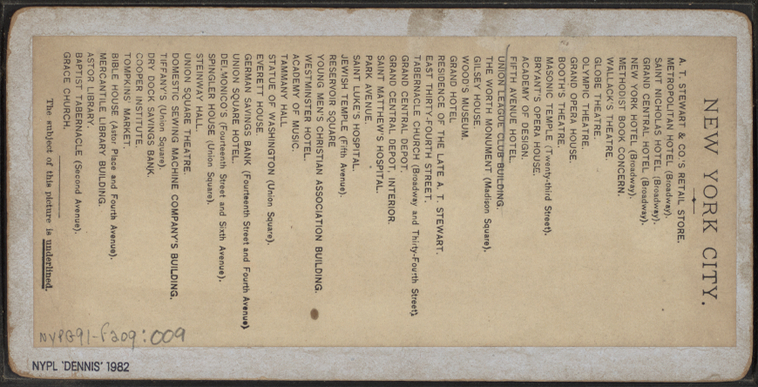 NEW YORK CITY.
A. T. STEWART & CO.'S RETAIL STORE.
METROPOLITAN HOTEL (Broadway).
SAINT NICHOLAS HOTEL (Broadway).
GRAND CENTRAL HOTEL (Broadway).
NEW YORK HOTEL (Broadway).
METHODIST BOOK CONCERN.
WALLACK'S THEATRE.
GLOBE THEATRE.
OLYMPIC THEATRE.
GRAND OPERA HOUSE.
BOOTH'S THEATRE.
MASONIC TEMPLE (Twenty-third Street).
BRYANT'S OPERA HOUSE.
ACADEMY OF DESIGN.
FIFTH AVENUE HOTEL.
UNION LEAGUE CLUB BUILDING.
THE WORTH MONUMENT (Madison Square).
GILSEY HOTEL.
WOOD'S MUSEUM.
GRAND HOTEL
RESIDENCE OF THE LATE A. T. STEWART.
EAST THIRTY-FOURTH STREET.
TABERNACLE CHURCH (Broadway and Thirty-Fourth Street).
GRAND CENTRAL DEPOT.
GRAND CENTRAL DEPOT INTERIOR.
SAINT MATHEW'S HOSPITAL.
PARK AVENUE.
SAINT LUKE'S HOSPITAL.
JEWISH TEMPLE (Fifth Avenue).
RESERVOIR SQUARE
YOUNG MEN'S CHRISTIAN ASSOCIATION BUILDING.
WESTMINSTER HOTEL.
ACADEMY OF MUSIC.
TAMMANY HALL
STATUE OF WASHINGTON (Union Square).
EVERETT HOUSE
GERMAN SAVINGS BANK (Fourteenth Street and Fourth Avenue)
UNION SQUARE HOTEL.
DELMONICO'S (Fourteenth Street and Sixth Avenue).
SPINGLER HOUSE (Union Square).
STEINWAY HALL.
UNION SQUARE THEATRE.
DOMESTIC SEWING MACHINE COMPANY'S BUILDING.
TIFFANY'S (Union Square).
DRY DOCK SAVINGS BANK.
COOPER INSTITUTE.
TOMPKINS MARKET.
BIBLE HOUSE (Astor Place and Fourth Avenue).
MERCANTILE LIBRARY BUILDING.
ASTOR LIBRARY.
BAPTIST TABERNACLE (Second Avenue).
GRACE CHURCH.
The subject of this picture is underlined.
NYPG91-F209:009
NYPL 'DENNIS' 1982